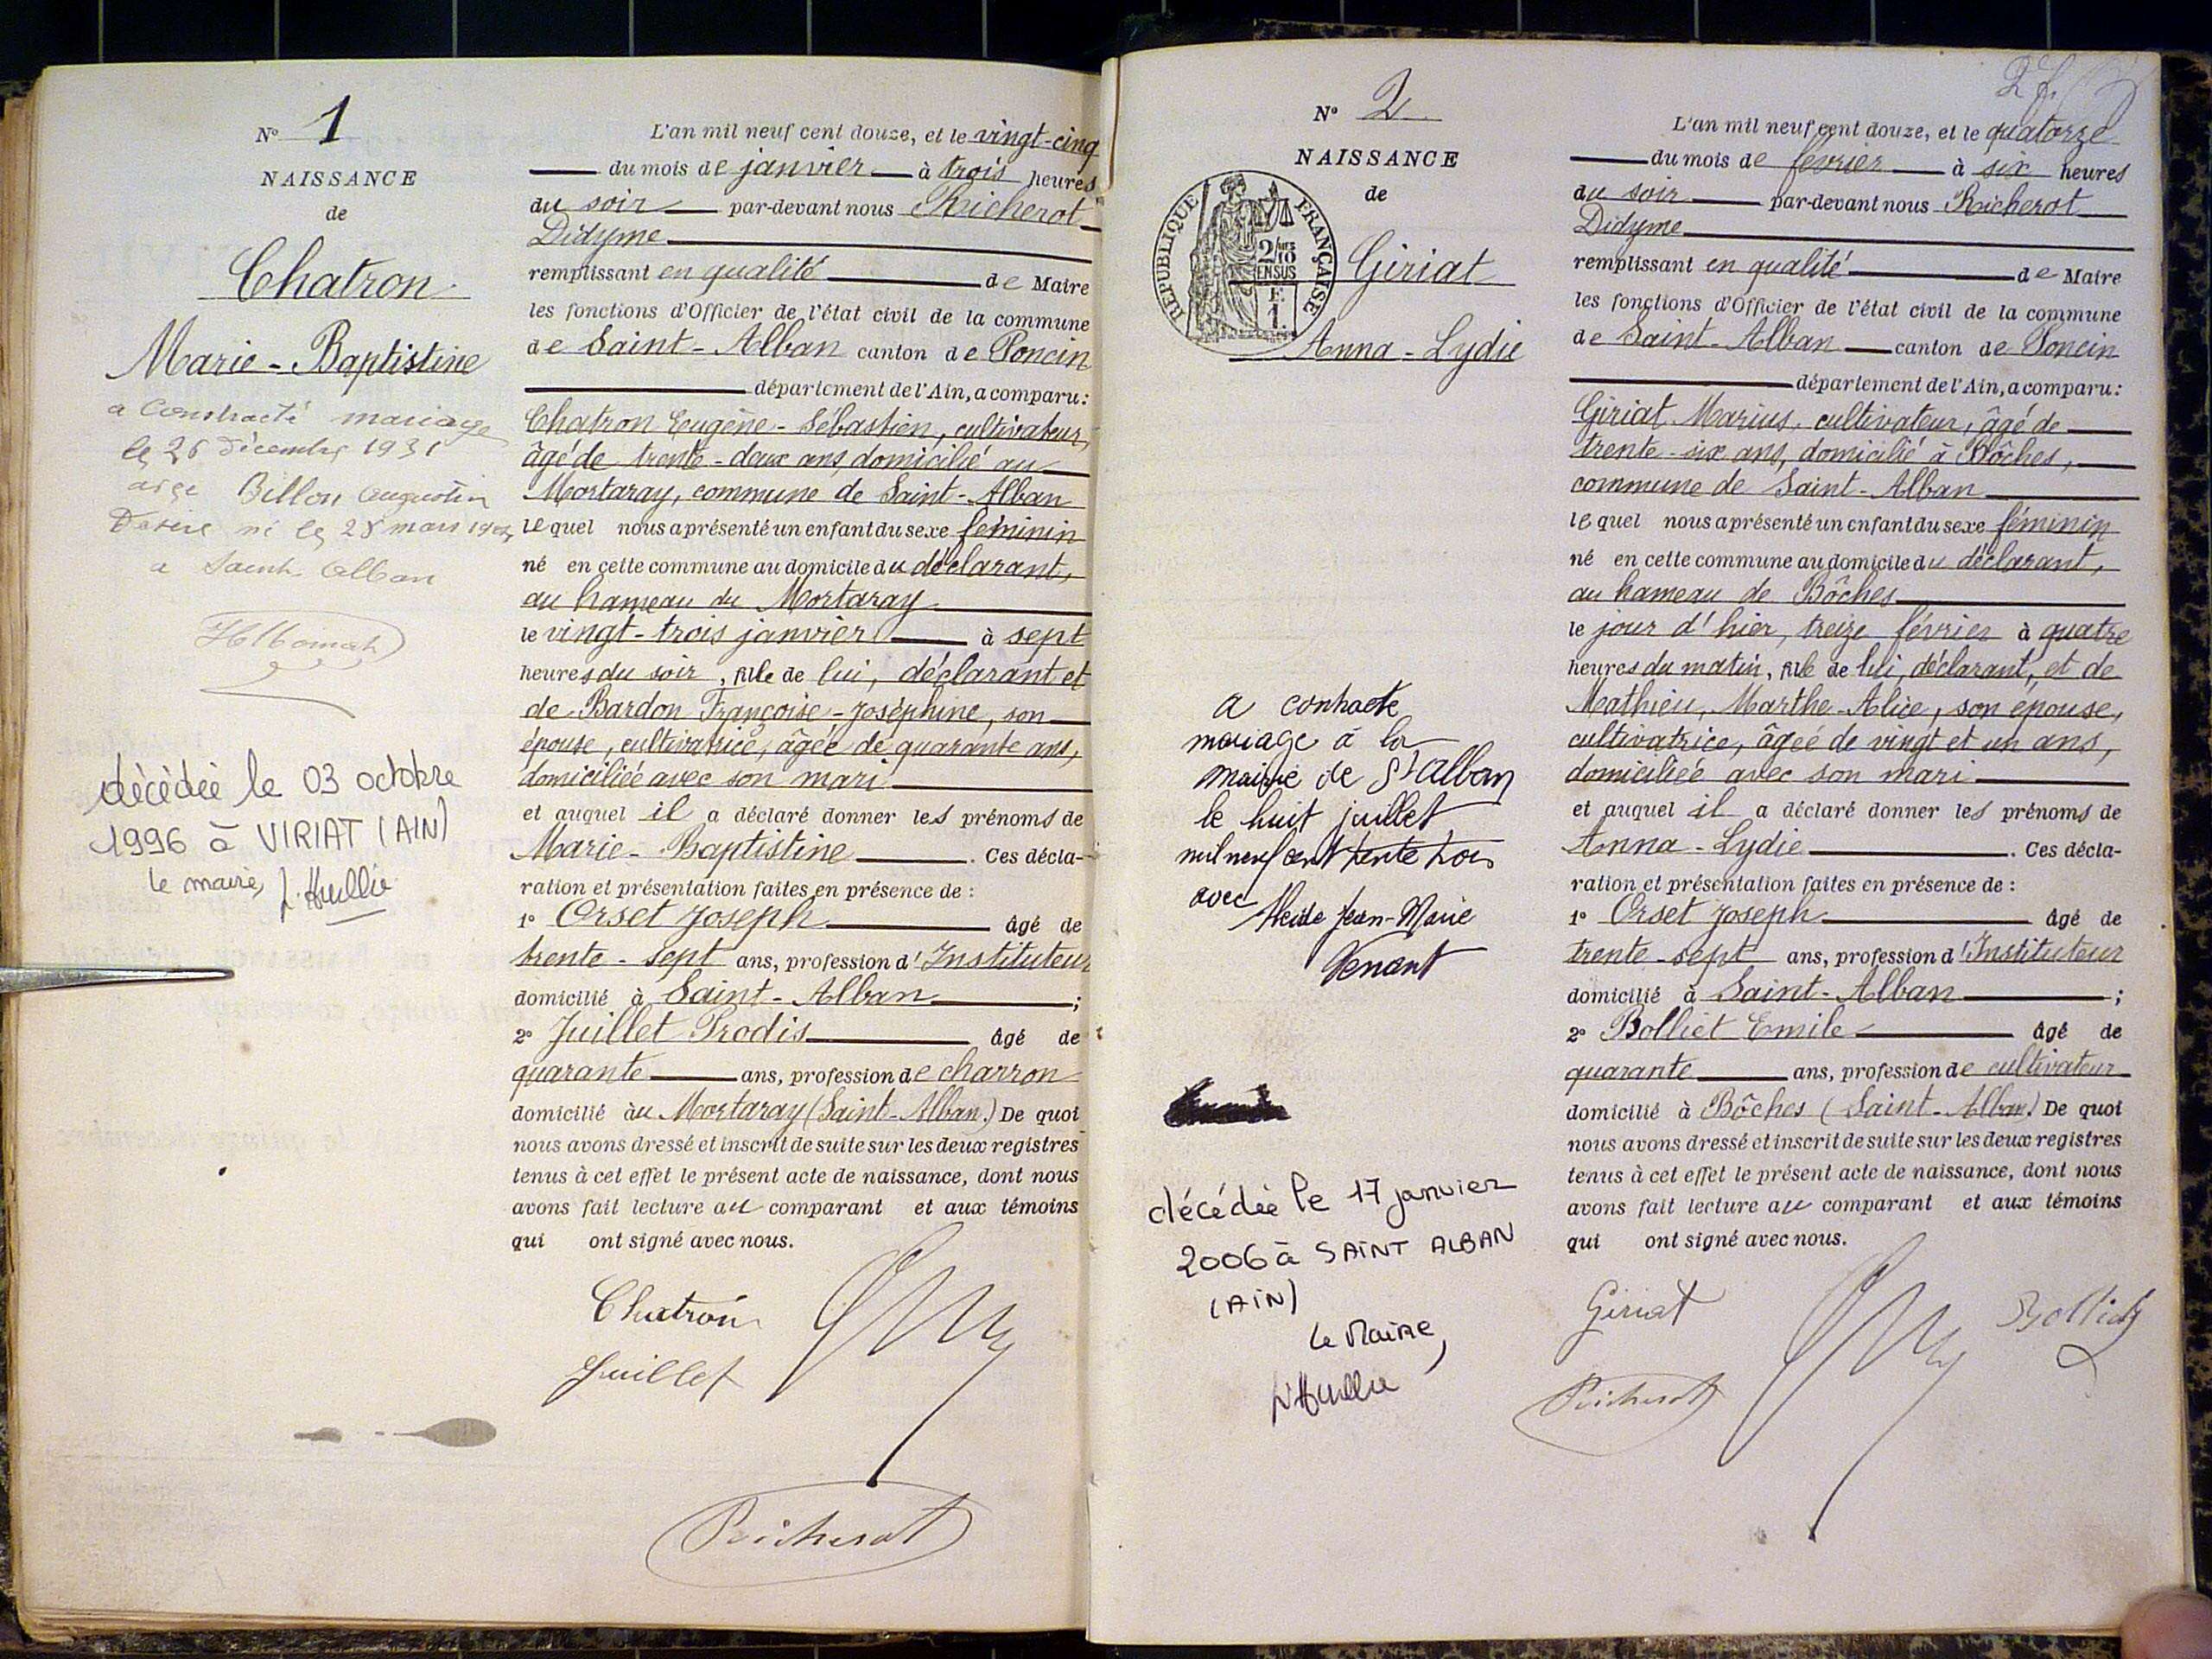 N° 1
NAISSANCE
de
Chatron
Marie-Baptistine
a contracté mariage
le 26 décembre 1931
avec Billon Augustin
Désiré né le 28 mars
a Saint Alban
décédée le 03 octobre
1996 à VIRIAT (AIN)
le maire,
L'an mil neuf cent douze, et le vingt-cinq
du mois de janvier à trois heures
du soir par-devant nous Richerot
Didyme
remplissant en qualité de Maire
les fonctions d'Officier de l'état civil de la commune
de Saint-Alban canton de Poncin
département de l'Ain, a comparu :
Chatron Eugène-Sébastien, cultivateur,
âgé de trente-deux ans, domicilié au
Mortaray, commune de Saint-Alban
lequel nous a présenté un enfant du sexe féminin
né en cette commune au domicile du déclarant,
au hameau du Mortaray
le vingt-trois janvier à sept
heures du soir, fille de lui, déclarant et
de Bardon Françoise-Joséphine, son
épouse, cultivatrice, âgée de quarante ans,
domiciliée avec son mari
et auquel il a déclaré donner les prénoms de
Marie-Baptistine. Ces décla-
ration et présentation faites en présence de :
1° Orset Joseph âgé de
trente-sept ans, profession d'Instituteur
domicilié à Saint-Alban ;
2° Juillet Prodis âgé de
quarante ans, profession de charron
domicilié au Mortaray (Saint-Alban.) De quoi
nous avons dressé et inscrit de suite sur les deux registres
tenus à cet effet le présent acte de naissance, dont nous
avons fait lecture au comparant et aux témoins
qui ont signé avec nous.
Chatron
Juillet
Richerot
N° 2
NAISSANCE
de
RÉPUBLIQUE FRANÇAISE
2/10
EN SUS
Giriat
Anna-Lydie
a contracté
mariage à la
mairie de St Alban
le huit juillet
mil neuf cent trente trois
avec
Jean-Marie
Venant
décédée le 17 janvier
2006 à SAINT ALBAN
(AIN)
Le Maire,
2
L'an mil neuf cent douze, et le quatorze
du mois de février à six heures
du soir par-devant nous Richerot
Didyme
remplissant en qualité de Maire
les fonctions d'Officier de l'état civil de la commune
de Saint-Alban canton de Poncin
département de l'Ain, a comparu :
Giriat Marius, cultivateur, âgé de
trente-six ans, domicilié à Bôches,
commune de Saint-Alban
lequel nous a présenté un enfant du sexe féminin
né en cette commune au domicile du déclarant,
au hameau de Bôches
le jour d'hier, treize février à quatre
heures du matin, fille de lui, déclarant, et de
Mathieu, Marthe-Alice, son épouse,
cultivatrice, âgée de vingt et un ans,
domiciliée avec son mari
et auquel il a déclaré donner les prénoms de
Anna-Lydie. Ces décla-
ration et présentation faites en présence de :
1° Orset Joseph âgé de
trente-sept ans, profession d'Instituteur
domicilié à Saint-Alban ;
2° Bolliet Emile âgé de
quarante ans, profession de cultivateur
domicilié à Bôches (Saint-Alban.) De quoi
nous avons dressé et inscrit de suite sur les deux registres
tenus à cet effet le présent acte de naissance, dont nous
avons fait lecture au comparant et aux témoins
qui ont signé avec nous.
Giriat
Bolliet
Richerot